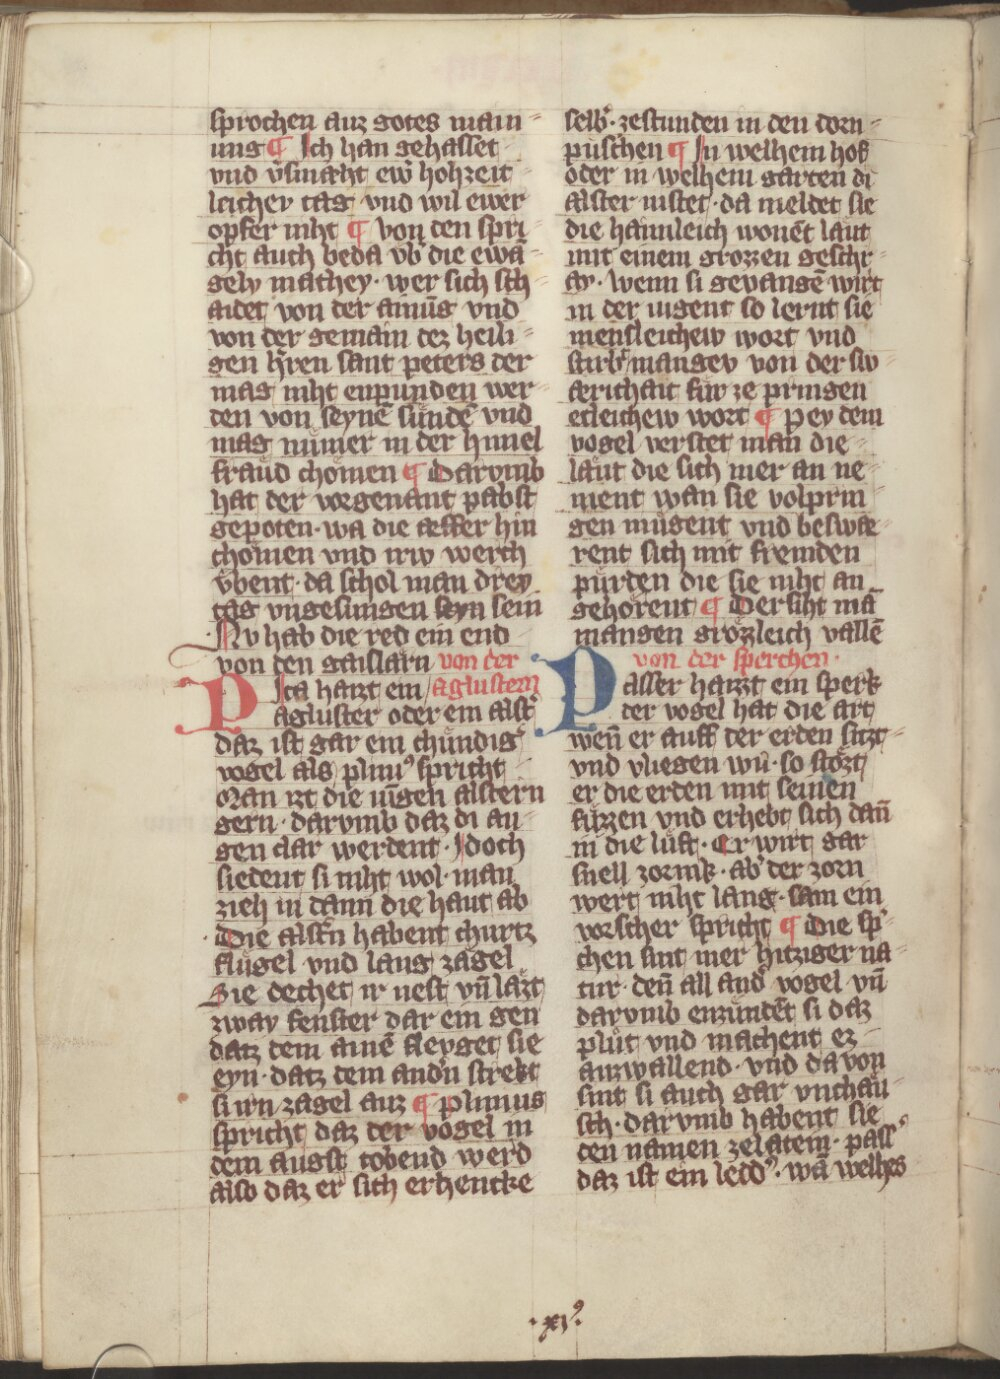 sprochen auz gotes main⸗
ung ¶ Ich han gehasset
vnd v̓smaht ew̓ hohzeit⸗
leicher tag vnd wil ewer
opfer niht ¶ von den spri⸗
cht auch beda vb̓ die ewā⸗
gely mathey · wer sich sch⸗
aidet von der ainūg vnd
von der gemain dez heili⸗
gen h̓ren sant peters der
mag niht enpunden wer⸗
den von seynē sündē vnd
mag nümer in der himel
fraüd chömen ¶ Darvmb
hat der vorgenant pabst
gepoten · wa die aeffer hin
chömen vnd irw werch
v̈bent · da schol man drey
tag vngesungen seyn sein
Nv hab die red ein end
von den gaislärn von der
Ica haizt ein aglustern
P
agluster oder ein alst̓
daz ist gar ein chündig̓
vogel als plini⁹ spricht
Man izt die iūgen alstern
gern · darvmb daz di au⸗
gen clar werdent · Idoch
siedent si niht wol · man
zieh in dann die haut ab
· Die alst̓n habent churtz
flügel vnd lang zagel
Sie dechet ir nest vn̄ lazt
zway fenster dar ein gen
datz dem ainē fleyget sie
eyn · datz dem and̓n strekt
si irn zagel auz ¶ plinius
spricht daz der vogel in
dem augst tobend werd
also daz er sich erhencke
selb̓ · zestunden in den dorn⸗
püschen ¶ In welhem hof
oder in welhem garten di
alster nistet · da meldet sie
die haimleich wonēt läut
mit einem grozzen geschr⸗
ay · wenn si gevangē wirt
in der iugent so lernt sie
menschleichew wort vnd
stirb̓t mangev von der sw
aerichait für ze pringen
etleichew wort ¶ Pey dem
vogel verstet man die
läut die sich mer an ne⸗
ment wan sie volprin⸗
gen mügent vnd beswae⸗
rent sich mit fremden
pürden die sie niht an
gehörent ¶ Der siht mā
mangen grözleich vallē
von der sperchen ·
P
asser haizt ein sperk
der vogel hat die art
wen̄ er auff der erden sitzt
vnd vliegen wil · so stözt
er die erden mit seinen
füzzen vnd erhebt sich dan̄
in die luft · Er wirt gar
snell zornik · ab̓ der zorn
wert niht lang · sam ein
vorscher spricht ¶ Die sp̓⸗
chen sint mer hitziger na⸗
tur · den̄ all and̓ vogel vn̄
darvmb enzündēt si daz
plüt vnd machent ez
auzwallend · vnd da von
sint si auch gar vnchäu⸗
sch · darvmb habent sie
den namen zelatem · pass̓
daz ist ein leid̓⁹ · wā welhes
· xv⁹ ·